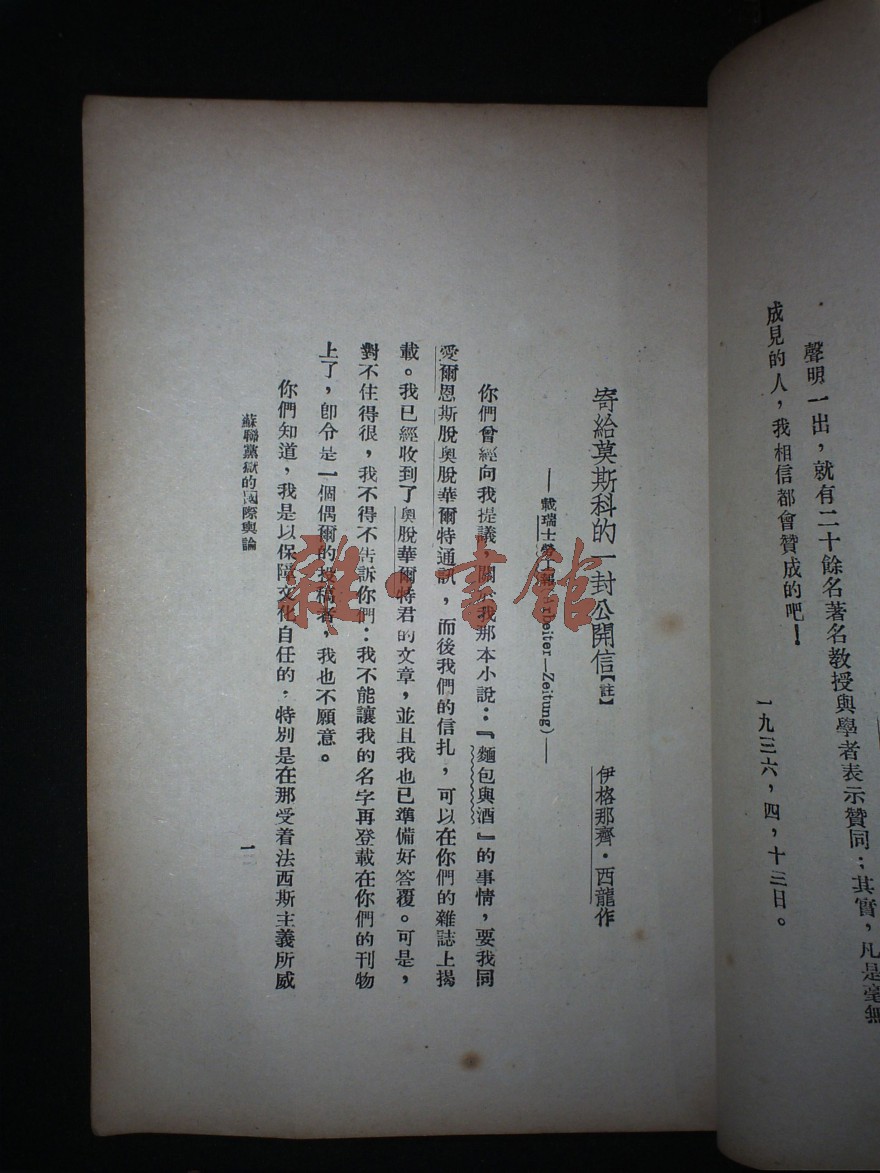 聲明一出，就有二十餘名著名教授與學者表示贊同；其實，凡是毫無
成見的人，我相信都會贊成的吧！
一九三六，四，十三日。
寄給莫斯科的一封公開信【註】
伊格那齊·西龍作
——載瑞士勞工報 Arbeiter—Zeitung)——
你們曾經向我提議，關於我那本小說：『麵包與酒』的事情，要我同
愛爾恩斯脫奧脫華爾特通訊，而後我們的信扎，可以在你們的雜誌上揭
載。我已經收到了奧脫華爾特君的文章，並且我也已準備好答覆。可是，
對不住得很，我不得不告訴你們：我不能讓我的名字再登載在你們的刊物
上了，即令是一個偶爾的投稿者，我也不願意。
你們知道，我是以保障文化自任的·特別是在那受着法西斯主義所威
蘇聯黨獄的國際輿論
雜·書館